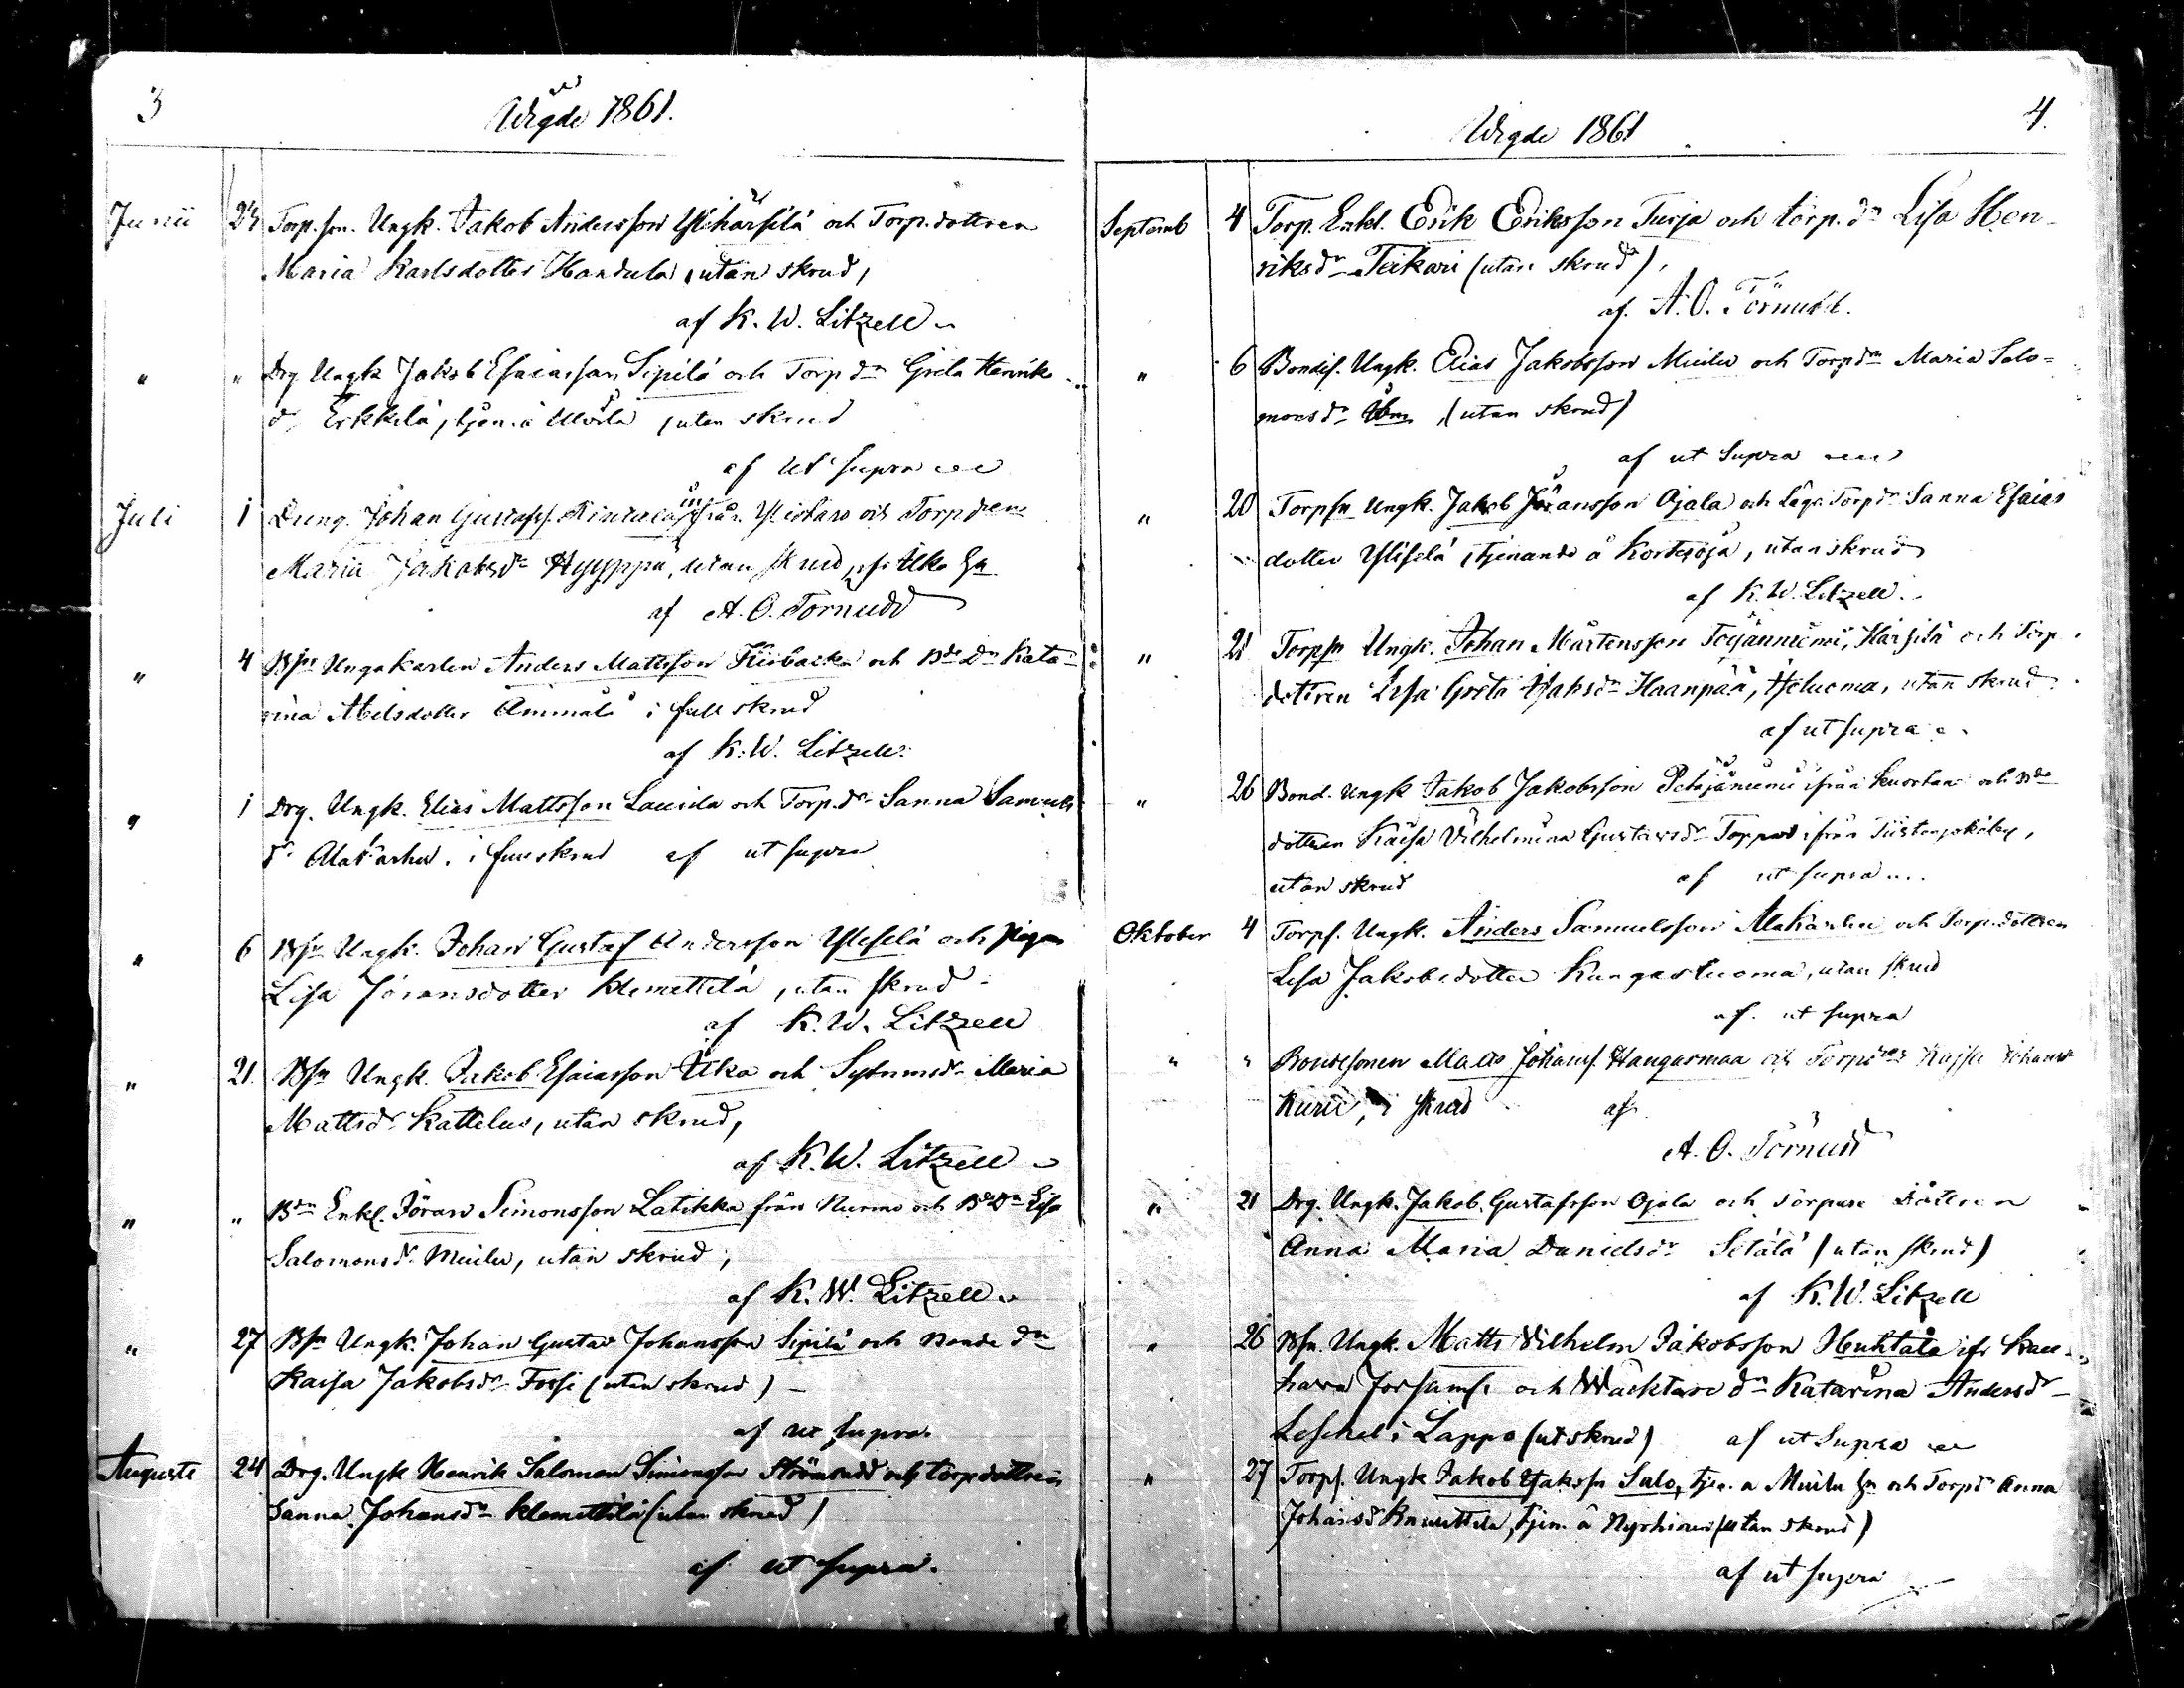 3
Wigde 1861.
Junii 23 Torp.son. Ungk. Jakob Andersson Ylihärsilä och Torp.dottren
Maria Karlsdotter Handula, utan skrud,
af K. W. Litzell
" " Drg Ungk Jakob Esaiasson Sipilä och Torp dn Greta Henriks
dr Erkkilä, tjen. å utan skrud
af ut supra
Juli 1 Dreng. Johan Gustafss. från Ylistaro och Torp
Maria Jakobsdr Hyyppä, utan skrud,
af A. O. Törnudd
" 4 Bsn Ungkarlen Anders Mattsson Kivibacka och Bde Dn Kata-
rina Abelsdotter Ämmälä i full skrud
af K. W. Litzell.
" 1 Drg. Ungk. Elias Mattsson Laurila och Torp.dr Sanna Samuels
dr Alakarhu. i full skrud af ut supra
" 6 Bsn Ungk. Johan Gustaf Andersson Yliselä och Pigan
Lisa Jöransdotter Klemettilä, utan skrud
af K. W. Litzell
" 21. Bsn Ungk. Jakob Esaiasson Ulka och Sytnmsdr Maria
Mattsdr Kattelus, utan skrud,
af K. W. Litzell
" " Bdn Enkl. Jöran Simonsson Latikka från Nurmo och BdeDn Lisa
Salomonsdr Muilu, utan skrud,
af K. W. Litzell
" 27 Bsn Ungk. Johan Gustav Johansson Sipilä och Bonde dn
Kaisa Jakobsdr Forsi (utan skrud)
af ut supra.
Augusti 24 Drg. Ungk Henrik Salomon Simonsson Strömsudd och torpdottren
Sanna Johansdr Klemettilä (utan skrud)
af ut supra.
Wigde 1861
4.
Septemb 4 Torp. Enkl. Erik Eriksson Turja och torp. dn Lisa Hen-
riksdr Teikari (utan skrud),
af. A. O. Törnudd.
" 6 Bondes. Ungk. Elias Jakobsson Muilu och Torpdn Maria Salo-
monsdr (utan skrud)
af ut supra
" 20 Torpsn Ungk. Jakob Jöransson Ojala och Torpdr Sanna Esaias
dotter Yliselä, tjenande å Kortesoja, utan skrud
af K. W. Litzell.
" 21 Torpsn Ungk. Johan Mårtensson Härsilä och Torp.
dottren Lisa Greta Isaksdr Haanpää, utan skrud.
af ut supra
" 26 Bond. Ungk Jakob Jakobsson Petäjäniemi ifrån Kuortane och Bde
dottren Kaisa Vilhelmina Gustavsdr Toppari ifrån Tiistenjokiby,
utan skrud af ut supra
Oktober 4 Torps. Ungk. Anders Samuelsson Alakarhu och Torp.dottren
Lisa Jakobsdotter Kangasluoma, utan skrud
af. ut supra
" " Bondesonen Matts Johanss. Hangasmaa och Kajsa Johansdr
Kurii, i skrud af
A. O. Törnudd
" 21 Drg. Ungk. Jakob. Gustafsson Ojala och torpare Dottren
Anna Maria Danielsdr Setälä (utan skrud)
af K. W. Litzell
" 26 Bsn. Ungk. Matts Vilhelm Jakobsson Huhtala ifr Kau-
hava Församl. och Wäcktare dn Katarina Andersdr
i Lappo (ut skrud) af ut supra
" 27 Torps. Ungk Jakob Isakssn Salo, tjen. å Muilu hn och Torpdr Anna
Johansdr Knuuttila, tjen. å (utan skrud)
af ut supra